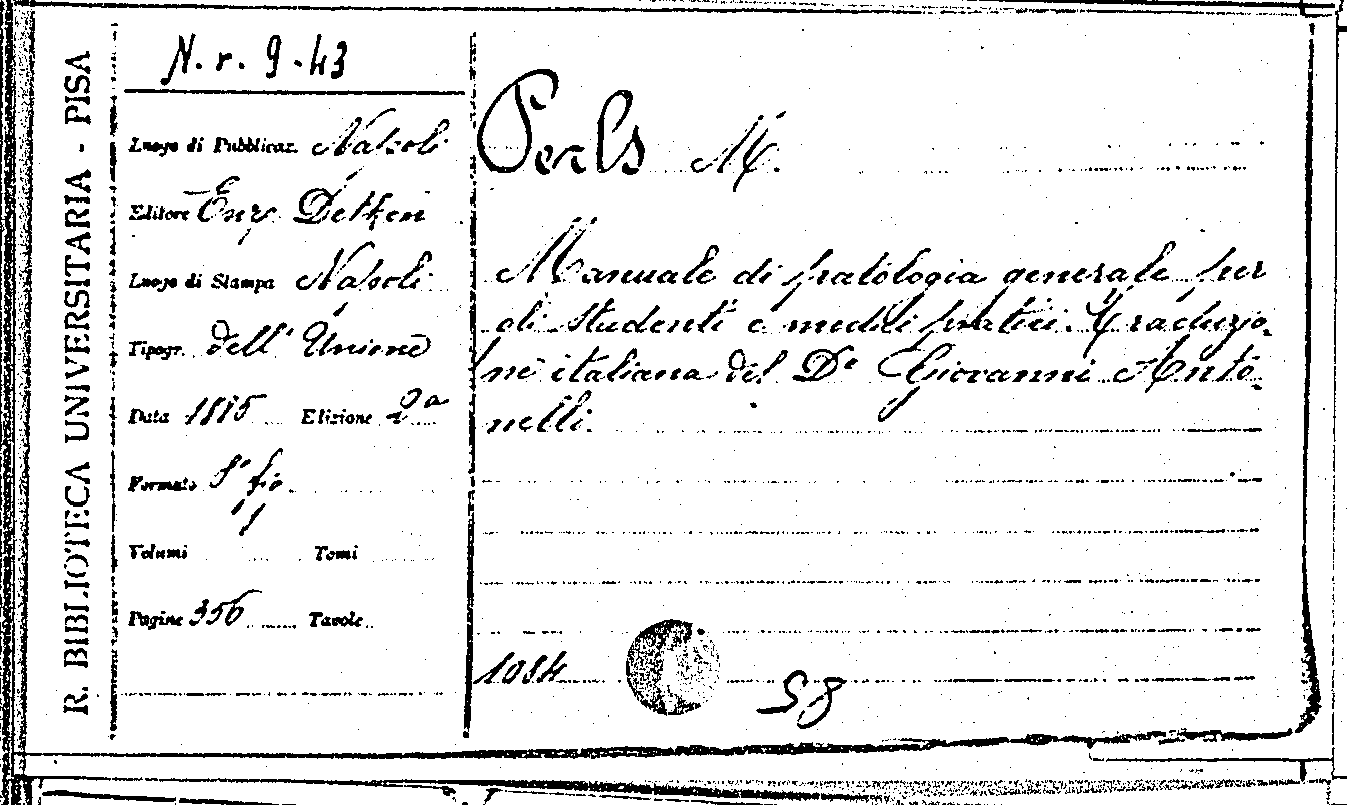 R. BIBLIOTECA UNIVERSITARIA - PISA
N. r. 9 - 43
Luogo di Pubblicaz. Napoli
Editore Enr. Detken
Luogo di Stampa Napoli
Tipogr. dell' Unione
Data Edizione 2a
Formato 8° fig.
Volumi Tomi
Pagine 356 Tavole
Perls M.
Manuale di patologia generale per
gli studenti e medici pratici. Traduzio-
ne italiana del Dr Giovanni Anto-
nelli.
1084
S8